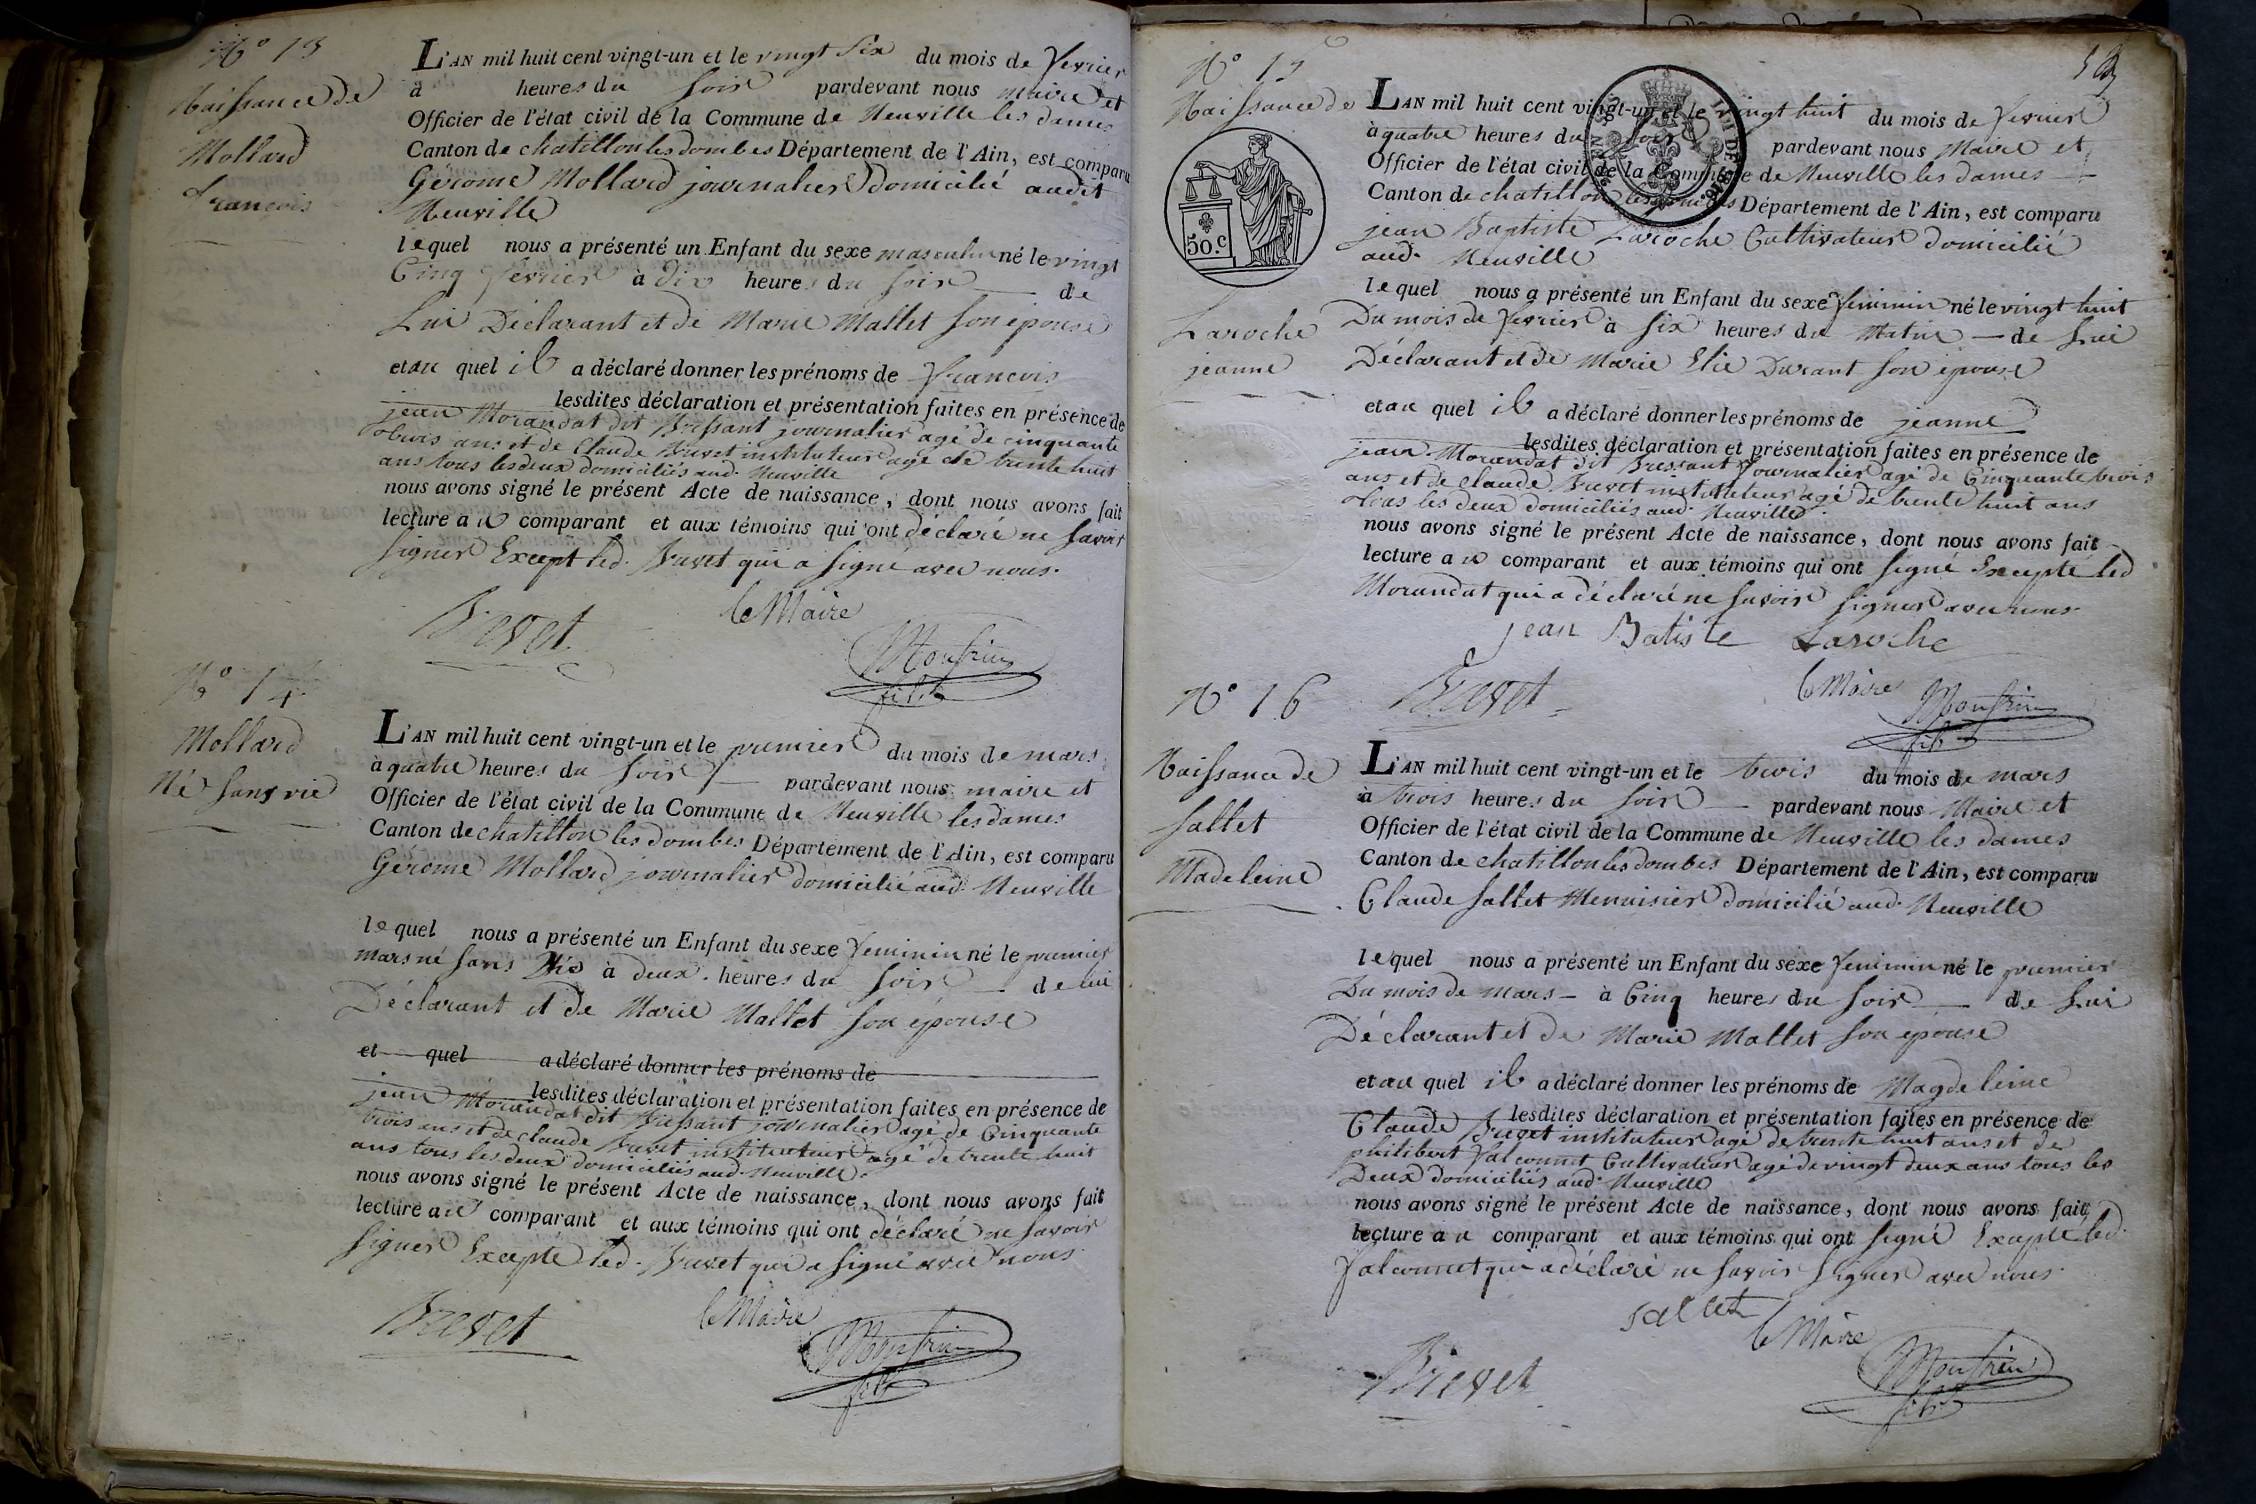 N° 13
Naissance de
Mollard
francois
L'AN mil huit cent vingt-un et le vingt six du mois de fevrier
à heures du soir pardevant nous maire et
Officier de l'état civil de la Commune de Neuville les dames
Canton de chatillon les dombes Département de l'Ain, est comparu
Gérome Mollard journalier domicilié audit
Neuville
lequel nous a présenté un Enfant du sexe masculin né le vingt
Cinq fevrier à dix heures du soir de
Lui Déclarant et de Marie Mallet son épouse
et au quel il a déclaré donner les prénoms de francois
lesdites déclaration et présentation faites en présence de
jean Morandat dit Bressant journalier agé de cinquante
trois ans et de Claude Buvet instituteur agé de trente huit
ans tous les deux domiciliés aud. Neuville
nous avons signé le présent Acte de naissance, dont nous avons fait
lecture au comparant et aux témoins qui ont déclaré ne savoir
signer Except led. Buvet qui a signé avec nous.
le Maire
fils
N° 14
Mollard
Né sans vie
L'AN mil huit cent vingt-un et le premier du mois de mars
à quatre heures du soir pardevant nous maire et
Officier de l'état civil de la Commune de Neuville les dames
Canton de chatillon les dombes Département de l'Ain, est comparu
Gérome Mollard journalier domicilié aud Neuville
lequel nous a présenté un Enfant du sexe feminin né le premier
mars né sans vie à deux heures du soir de lui
Déclarant et de Marie Mallet son épouse
et quel a déclaré donner les prénoms de
lesdites déclaration et présentation faites en présence de
jean Morandat dit Bressant journalier agé de Cinquante
trois ans et de claude Buvet instituteur agé de trente huit
ans tous les deux domiciliés aud. Neuville.
nous avons signé le présent Acte de naissance, dont nous avons fait
lecture au comparant et aux témoins qui ont déclaré ne savoir
signer Excepté led. Buvet qui a signé avec nous.
le Maire
fils
N° 15
Naissance de
50.c
Laroche
jeanne
L'AN mil huit cent vingt-un et le vingt huit du mois de fevrier
à quatre heures du soir pardevant nous Maire et
Officier de l'état civil de la Commune de Neuville les dames
Canton de chatillon les dombes Département de l'Ain, est comparu
jean Baptiste Laroche Cultivateur domicilié
aud. Neuville
lequel nous a présenté un Enfant du sexe feminin né le vingt huit
Du mois de fevrier à six heures du Matin de Lui
Déclarant et de Marie Elie Durant son épouse
et au quel il a déclaré donner les prénoms de jeanne
lesdites déclaration et présentation faites en présence de
jean Morandat dit Bressant journalier agé de Cinquante trois
ans et de claude Buvet instituteur agé de trente huit ans
tous les deux domiciliés aud. Neuville.
nous avons signé le présent Acte de naissance, dont nous avons fait
lecture au comparant et aux témoins qui ont signé Excepté led
Morandat qui a déclaré ne savoir signer avec nous.
jean Batiste Laroche
le Maire
fils
N° 16
Naissance de
sallet
Madeleine
L'AN mil huit cent vingt-un et le trois du mois de mars
à trois heures du soir pardevant nous Maire et
Officier de l'état civil de la Commune de Neuville les dames
Canton de chatillon les dombes Département de l'Ain, est comparu
Claude sallet Menuisier domicilié aud. Neuville
lequel nous a présenté un Enfant du sexe feminin né le premier
Du mois de mars à Cinq heures du soir de Lui
Déclarant et de Marie Mallet son épouse
et au quel il a déclaré donner les prénoms de Magdeleine
lesdites déclaration et présentation faites en présence de
Claude Buvet instituteur agé de trente huit ans et de
philibert falconnet Cultivateur agé de vingt deux ans tous les
Deux domiciliés aud. Neuville
nous avons signé le présent Acte de naissance, dont nous avons fait
lecture au comparant et aux témoins qui ont signé Excepté led.
falconnet qui a déclaré ne savoir signer avec nous.
sallet
le Maire
fils